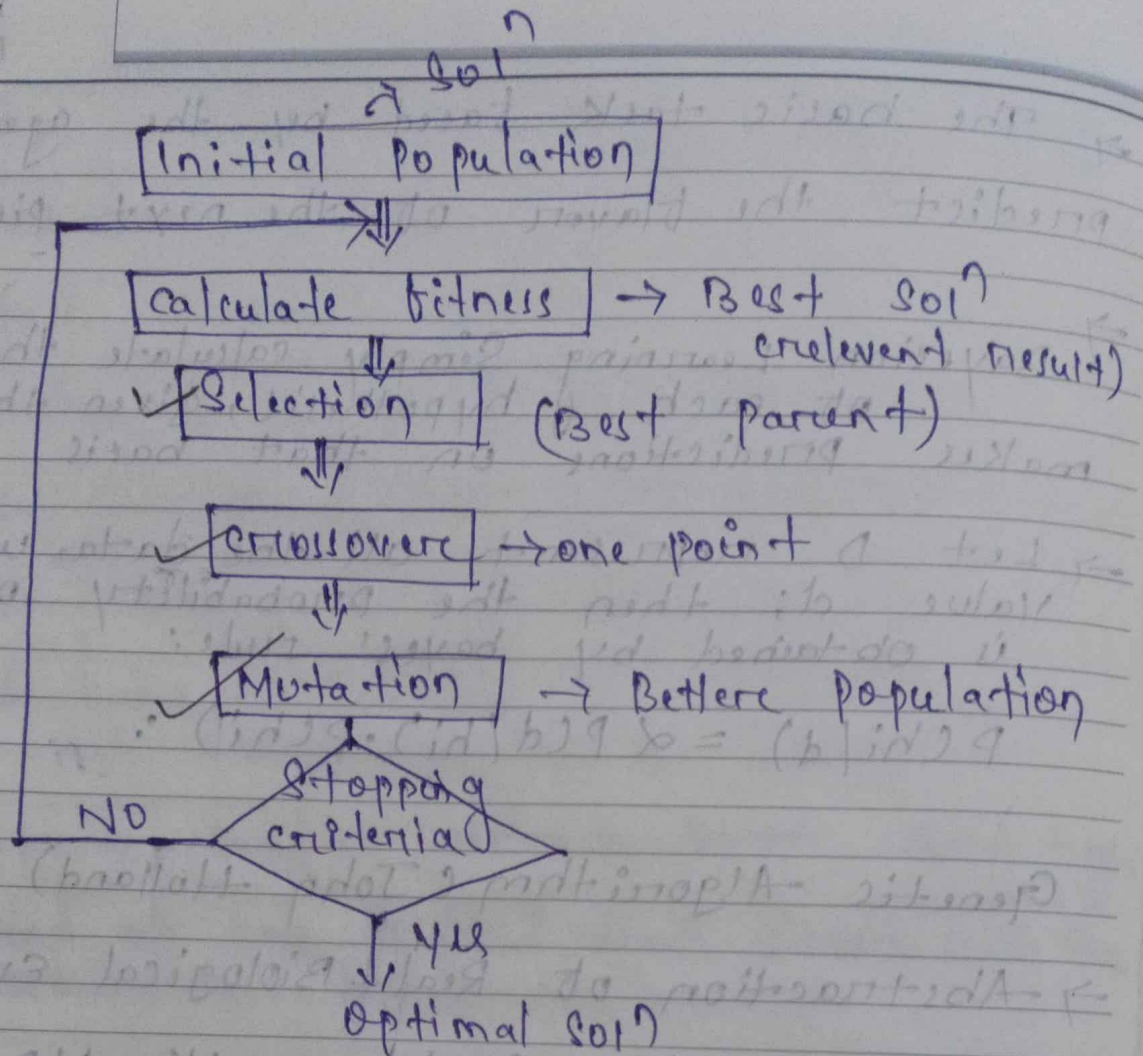 Solⁿ
Initial Population
Calculate fitness → Best Solⁿ
(relevent result)
Selection (Best parent)
Crossover → one point
Mutation → Better population
Stopping
criteria
NO
Yes
Optimal Solⁿ